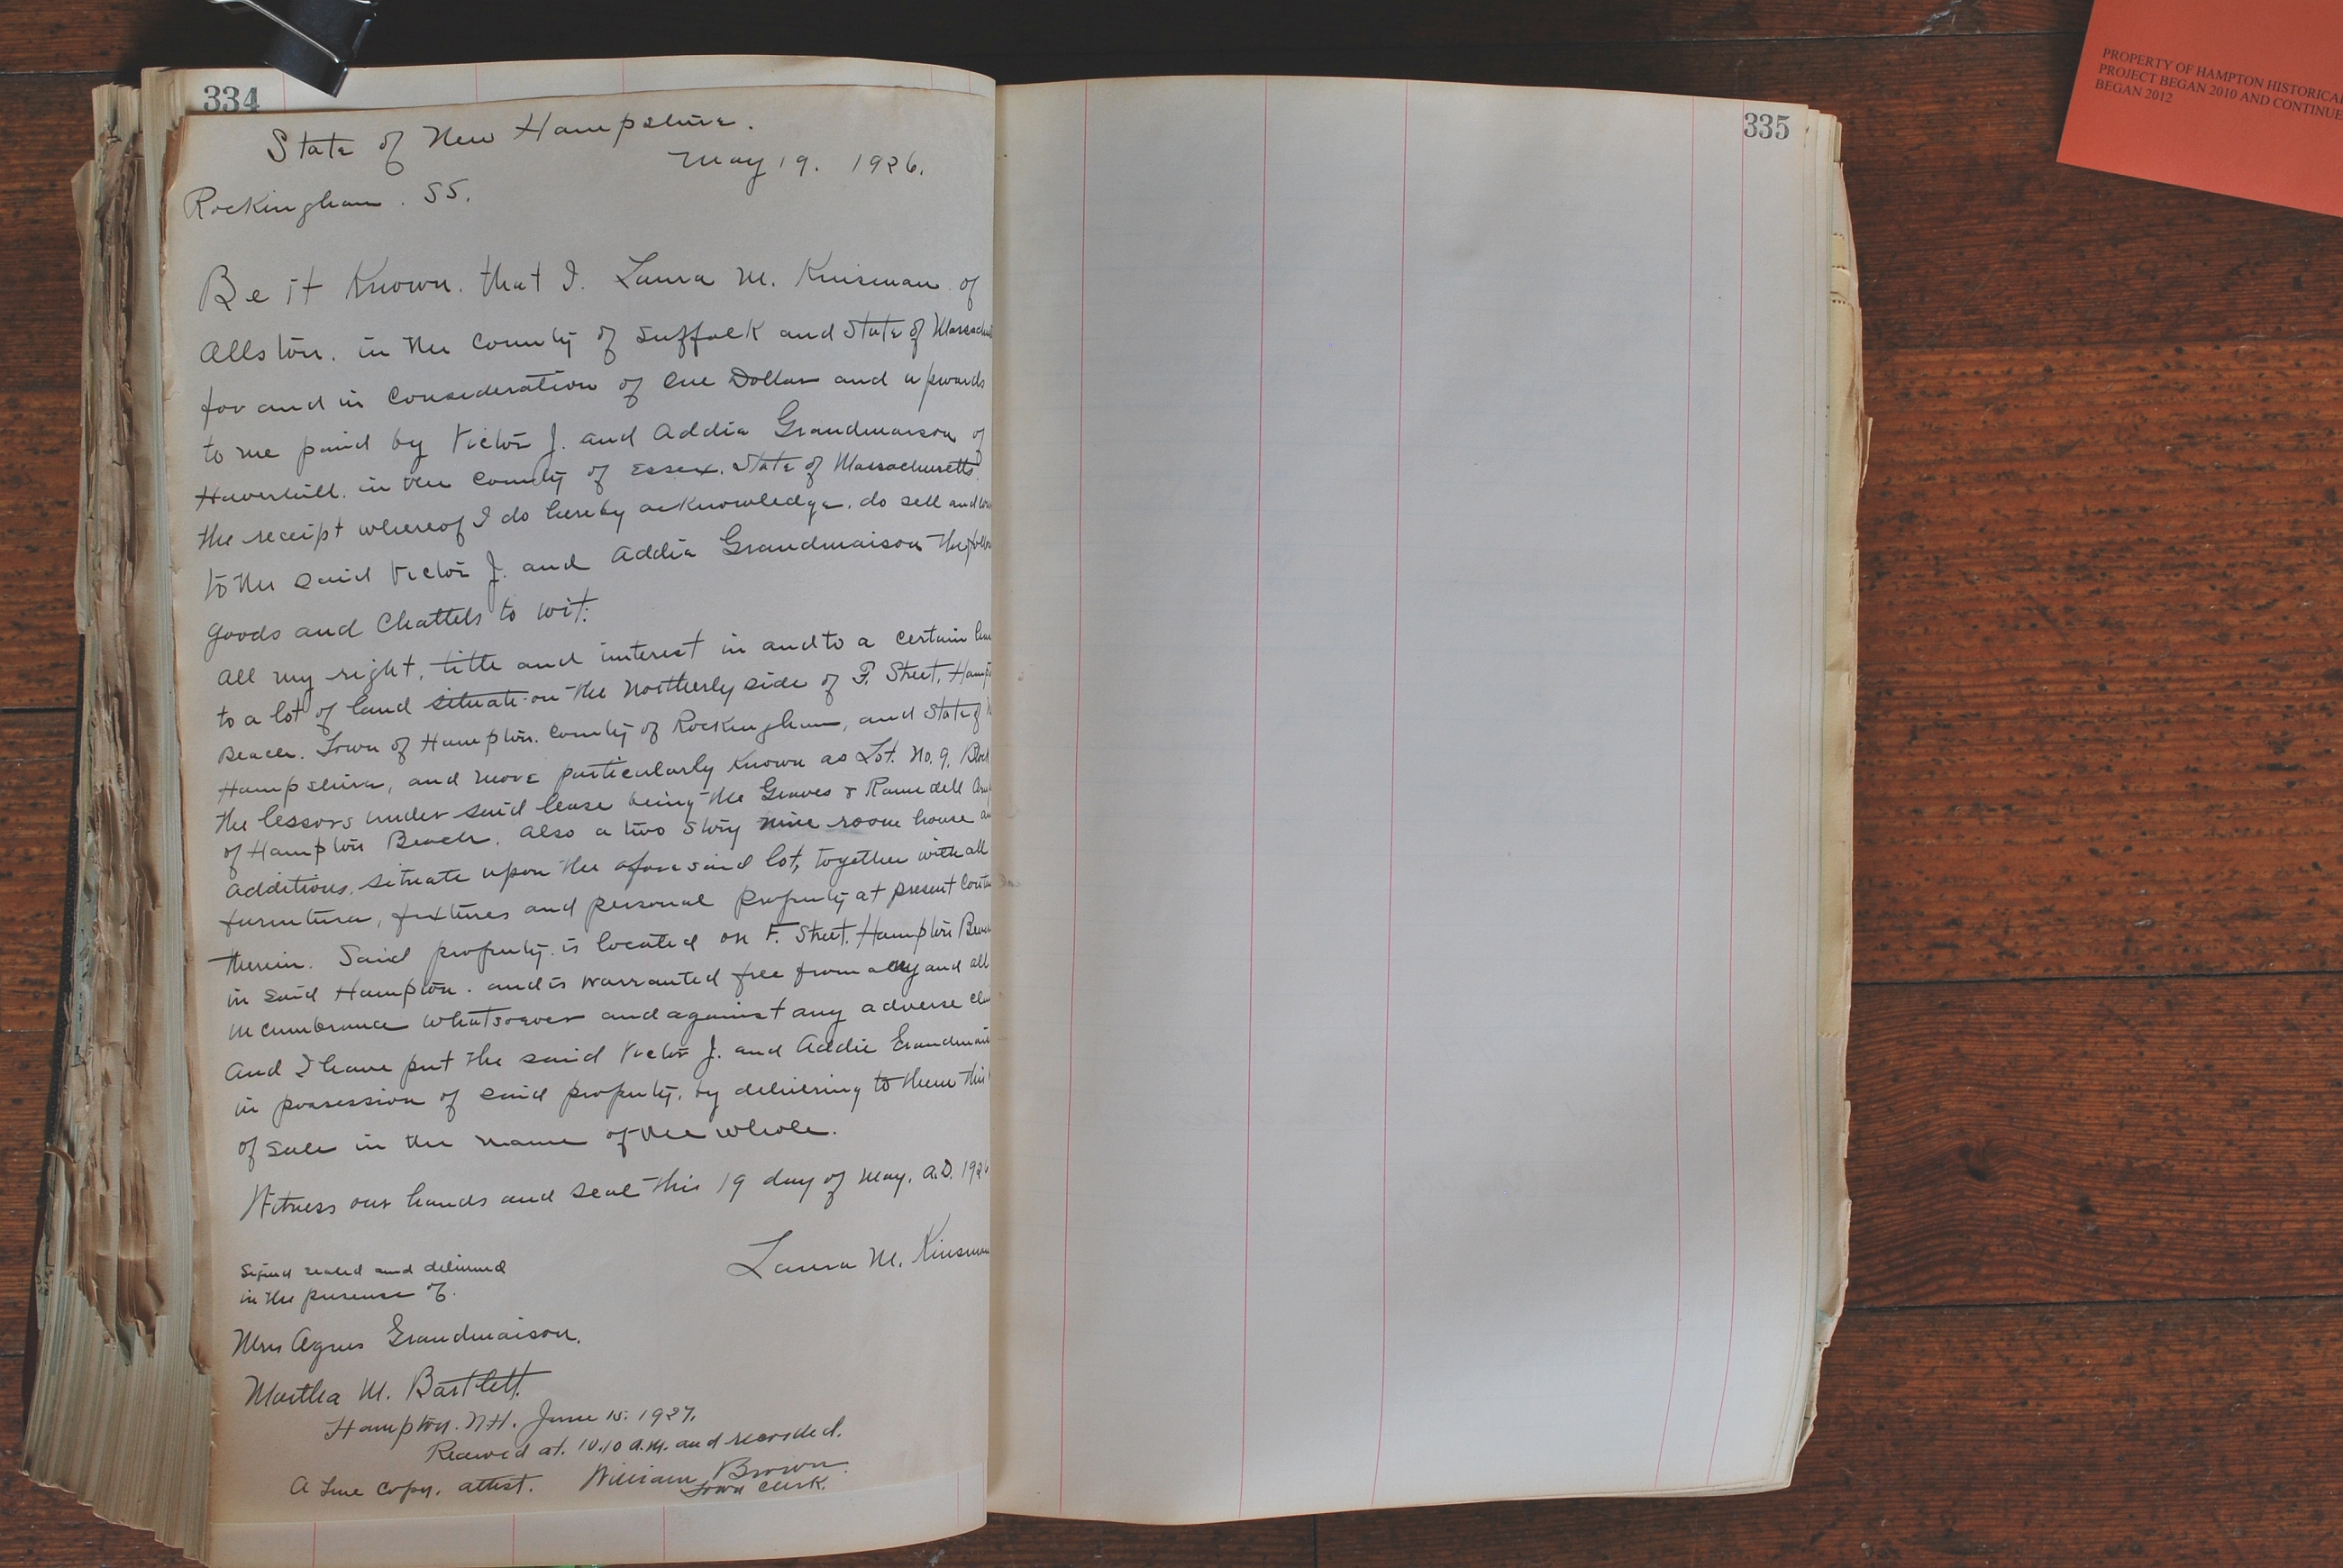 334
State of New Hampshire.
May 19. 1926.
Rockingham. SS.
Be it Known. that I. Laura M. Kinsman of
Allston. in the County of Suffolk and State of
for and in Consideration of One Dollar and upwards
to me paid by Victor J. and Addie Grandmaison of
Haverhill. in the County of Essex. State of Massachusetts
the receipt whereof I do hereby acknowledge. do sell and
to the said Victor J. and Addie Grandmaison the
goods and Chattels to wit:
All my right, title and interest in and to a certain
to a lot of land situate on the Northerly side of F. Street,
Beach. Town of Hampton. County of Rockingham, and State of
Hampshire, and more particularly Known as Lot. No. 9.
the lessors under said lease being the Graves & Ramsdell
of Hampton Beach. Also a two story nine room house
additions. situate upon the aforesaid lot, together with all
furniture, fixtures and personal property at present
therein. Said property. is located on F. Street. Hampton
in said Hampton. and is warranted free from any and all
incumbrance whatsoever and against any adverse
And I have put the said Victor J. and Addie
in possession of said property. by delivering to them
of sale in the name of the whole.
Witness our hands and seal this 19 day of May. A.D.
Laura M.
Signed sealed and delivered
in the presense of.
Mrs Agnes Grandmaison.
Martha M. Bartlett
Hampton. N.H. June 15. 1927.
Received at. 10.10 A.M. and recorded.
A true Copy. attest. William Brown.
Town Clerk.
335
PROPERTY OF HAMPTON
PROJECT BEGAN 2010 AND
BEGAN 2012